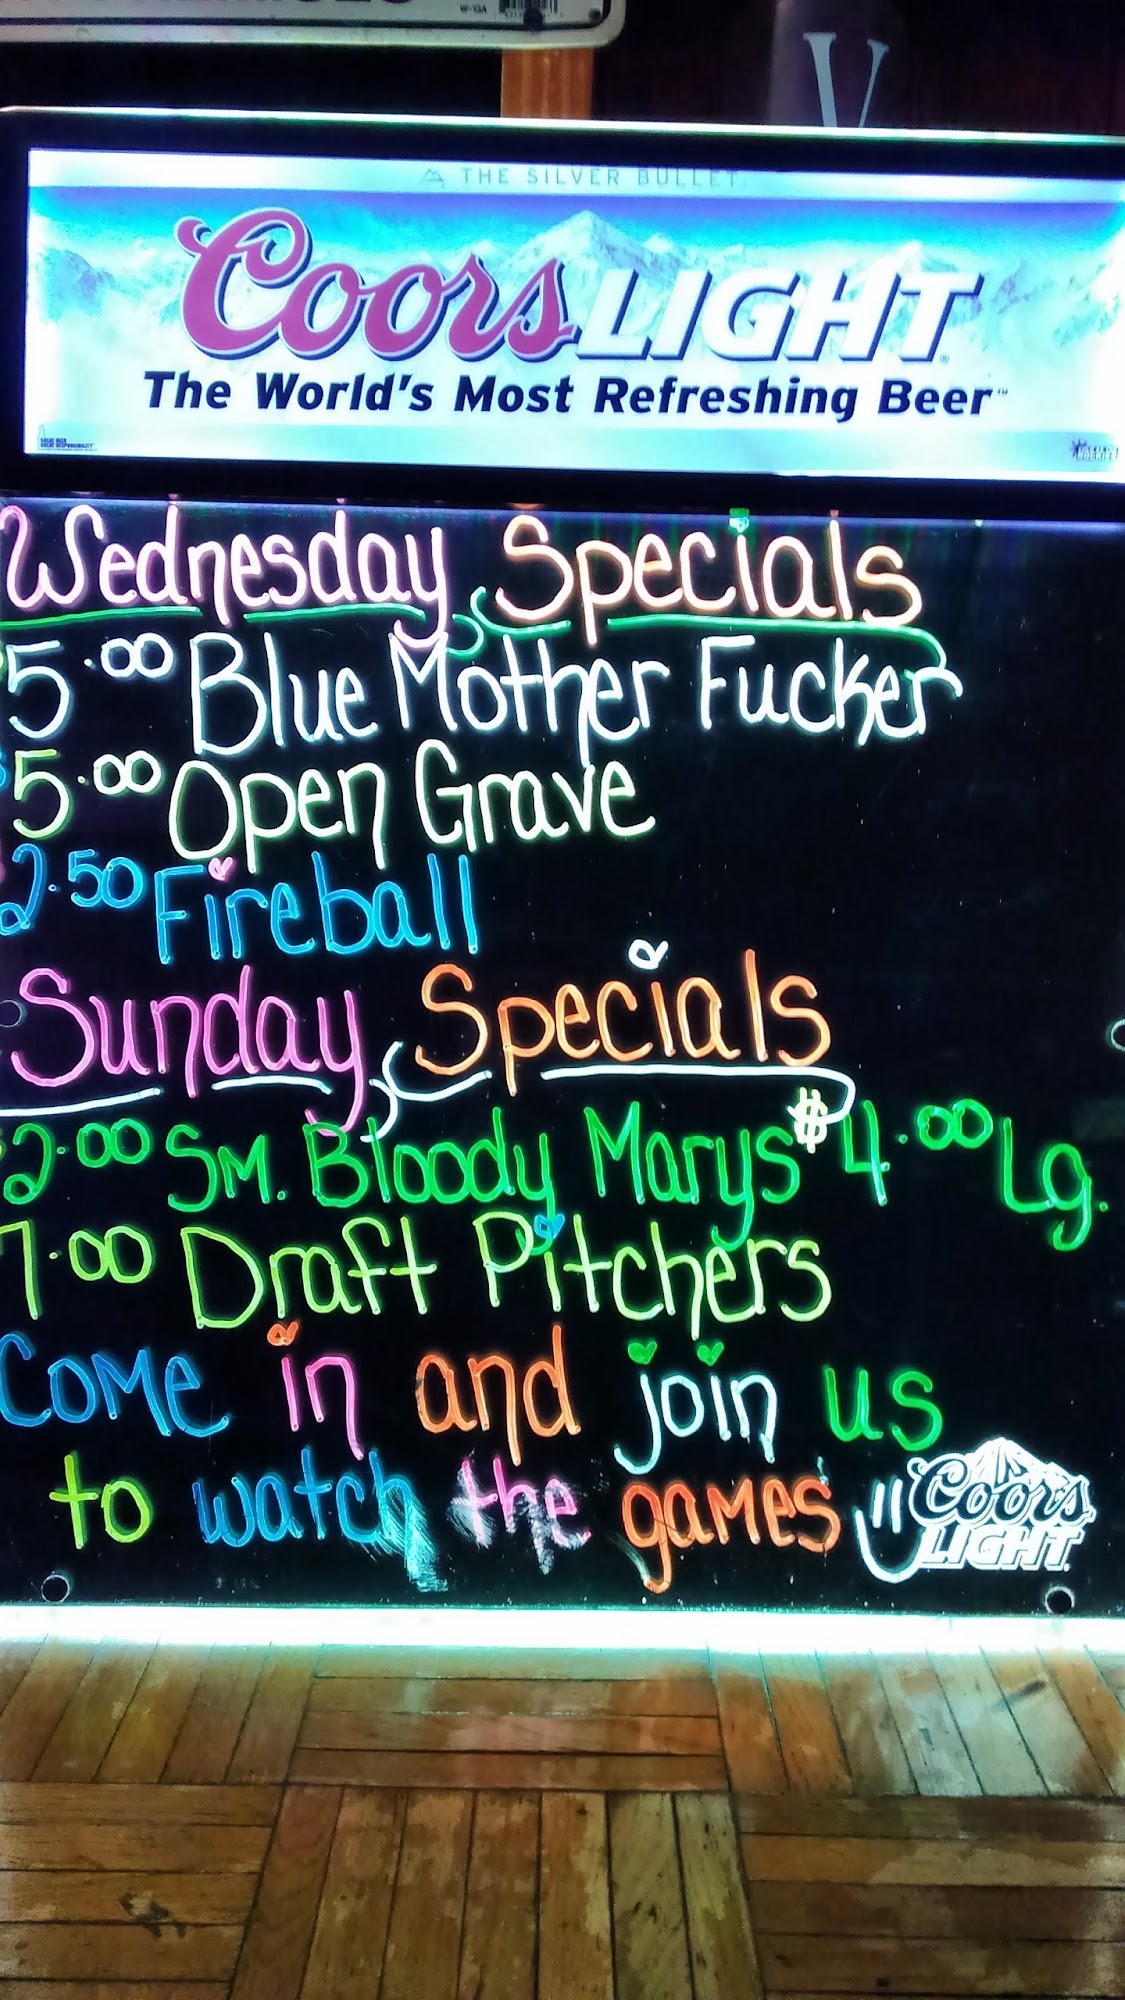 W-13A
V
THE SILVER BULLET.
Coors LIGHT®
The World's Most Refreshing Beer™
GREAT BEER
GREAT RESPONSIBILITY
Wednesday Specials
5.00 Blue Mother Fucker
$5.00 Open Grave
2.50 Fireball
Sunday Specials
$2.00 Sm. Bloody Marys $4.00 Lg.
7.00 Draft Pitchers
Come in and join us
to watch the games
Coors
LIGHT